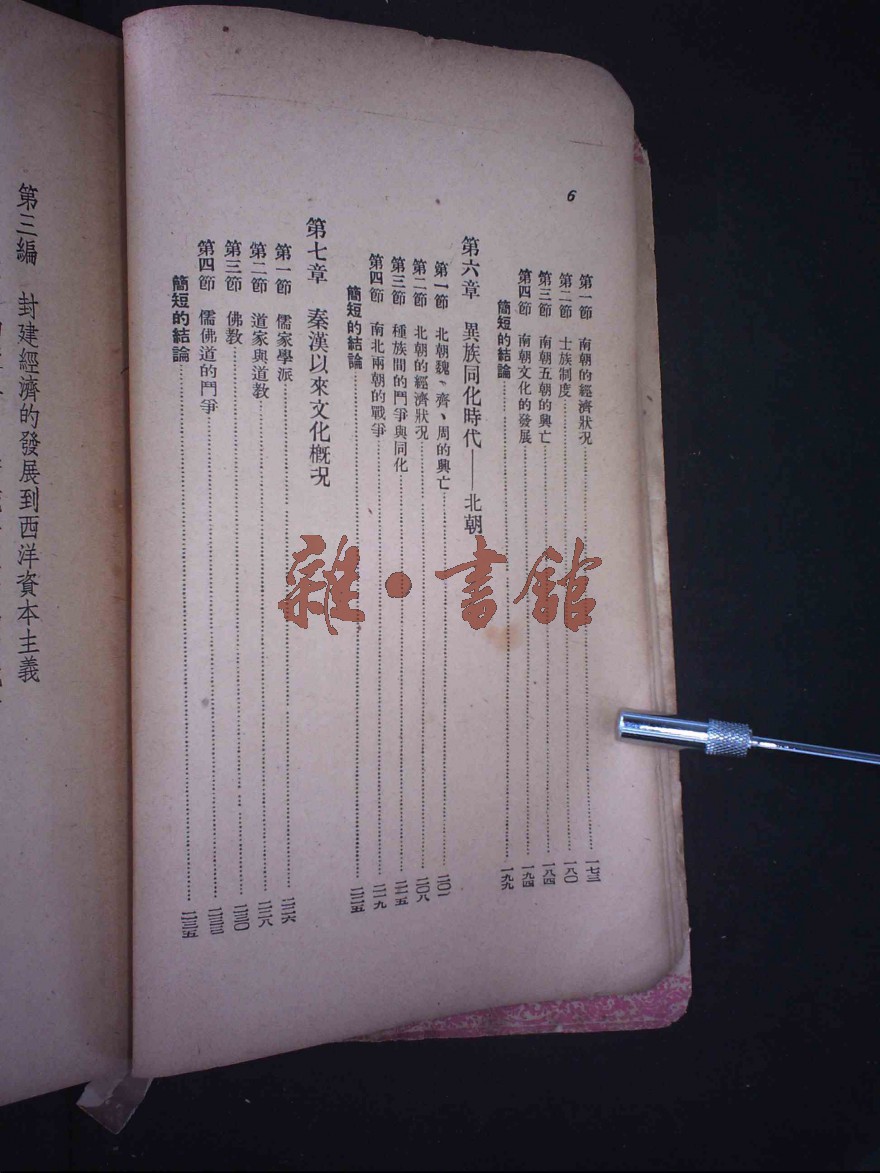 6
第一節 南朝的經濟狀況……一七三
第二節 士族制度……一八〇
第三節 南朝五朝的興亡……一八四
第四節 南朝文化的發展……一九四
簡短的結論……一九九
第六章 異族同化時代——北朝
第一節 北朝魏、齊、周的興亡……二〇一
第二節 北朝的經濟狀況……二〇八
第三節 種族間的鬥爭與同化……二一五
第四節 南北兩朝的戰爭……二一九
簡短的結論……二二五
第七章 秦漢以來文化概況
第一節 儒家學派……二二六
第二節 道家與道教……二二八
第三節 佛教……二三〇
第四節 儒佛道的鬥爭……二三三
簡短的結論……二三五
第三編 封建經濟的發展到西洋資本主義
雜·書館